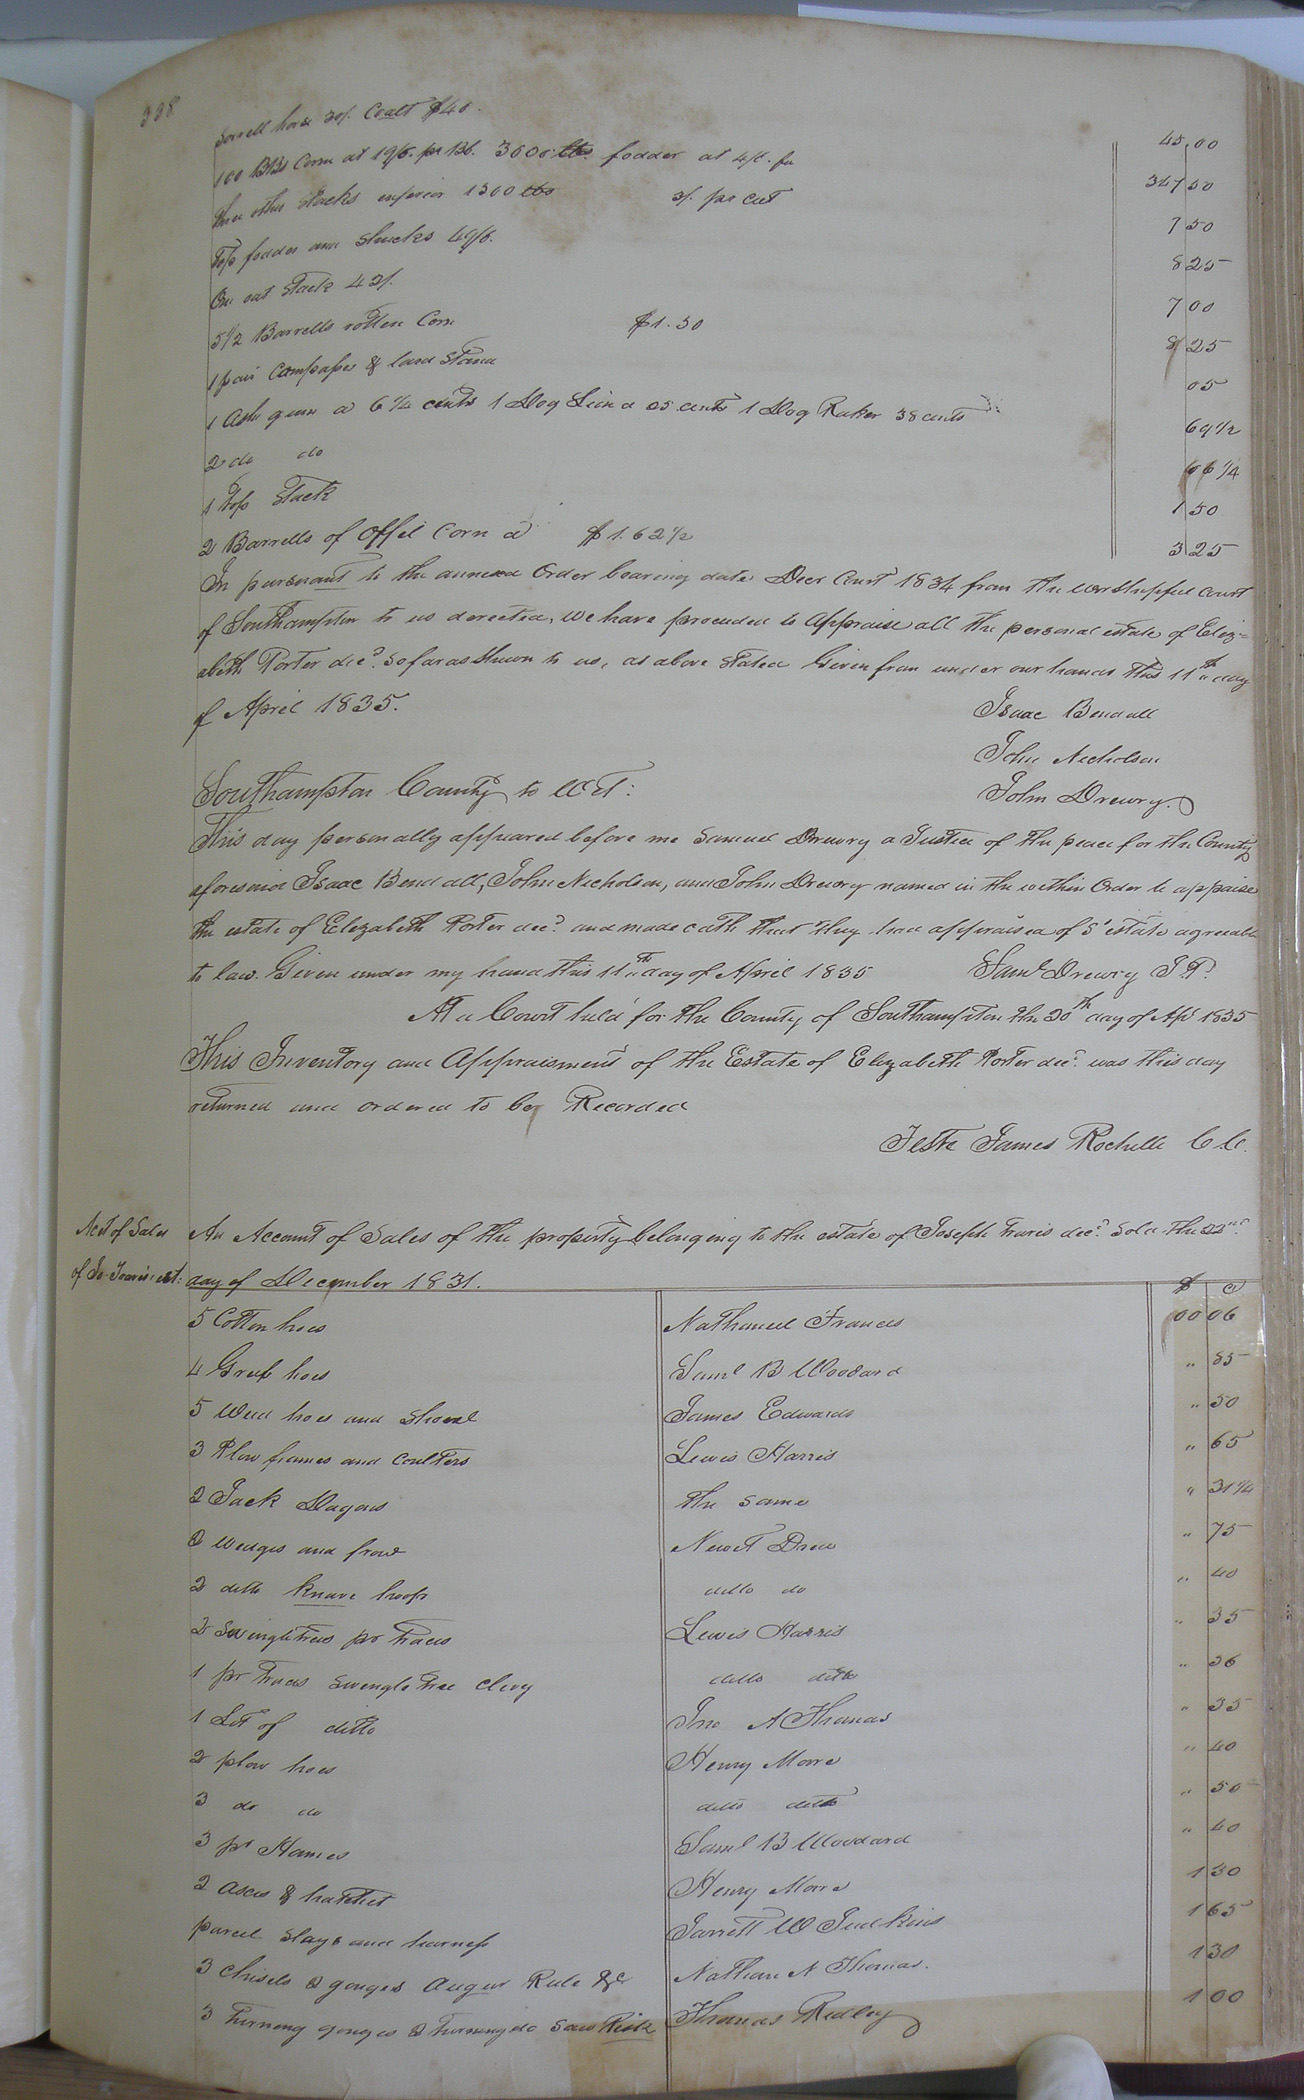 338
Sorrell horse 30/. Coalt $40. 45.00
100 BBls Corn at 19/6. pr Bb. 3600 lbs fodder at 4/6. pr 347 50
three other stacks inferior 1300 lbs 3/. pr cut 7 50
Top fodder and Shucks 49/6. 8 25
One oat Stack 42/. 7 00
5 1/2 Barrells rotten Corn $1.50 8 25
1 pair Compases & land Stand 05
1 Ash gum a 6 1/4 cents 1 Dog Lion a 25 cents 1 Dog Raker 38 cents 69 1/2
2 do do 06 1/4
1 top Stack 1 50
2 Barrells of Offel Corn a $1.62 1/2 3 25
In pursuant to the annexed Order bearing date Decr Court 1834 from the worshipful court
of Southampton to us derected, We have proceeded to Appraise all the personal estate of Eliz=
abeth Porter decd. So far as Shown to us, as above Stated Given from under our hands this 11th day
of April 1835. Isaac Bendall
John Nicholson
Southampton County to Wit: John Drewry.
This day personally appeared before me Samuel Drewry a Justice of the peace for the County
aforesaid Isaac Bendall, John Nicholson, and John Drewry named in the within Order to appraise
the estate of Elizabeth Porter decd. and made oath that they had appraised of sd estate agreeable
to law. Given under my hand this 11th day of April 1835 Saml Drewry J.P.
At a Court held for the County of Southampton the 20th day of Apl 1835
This Inventory and Appraisment of the Estate of Elizabeth Porter decd. was this day
returned and ordered to be Recorded
Teste James Rochelle C.C.
Acct of Sales An Account of Sales of the property belonging to the estate of Joseph Travis decd. Sold the 22nd.
of Jo Travis est: day of December 1831. $ C
5 Cotton hoes Nathaniel Francis 00 06
4 Grub hoes Saml B Woodard " 85
5 Weed hoes and Shovel James Edwards " 50
3 Plow frames and Coulters Lewis Harris " 65
2 Jack Dagons the same " 31 1/4
2 Wedges and frow Newit Drew " 75
2 ditto knave hoops ditto do " 40
2 Swingletrees pr traces Lewis Harris " 35
1 pr traces Swengle tree clevy ditto ditto " 36
1 Lot of ditto Jno A Thomas " 35
2 plow hoes Henry Moore " 40
3 do do ditto ditto " 50
3 pr Hames Saml B Woodard " 40
2 Axes & hatchet Henry Moore 1 30
parcel Slays and harness Jarrett W Judkins 1 65
3 Chisels 2 gouges Augur Rule &c Nathan N Thomas. 1 30
3 Turneng gouges 2 turneng do Saw Thomas Ridley 1 00